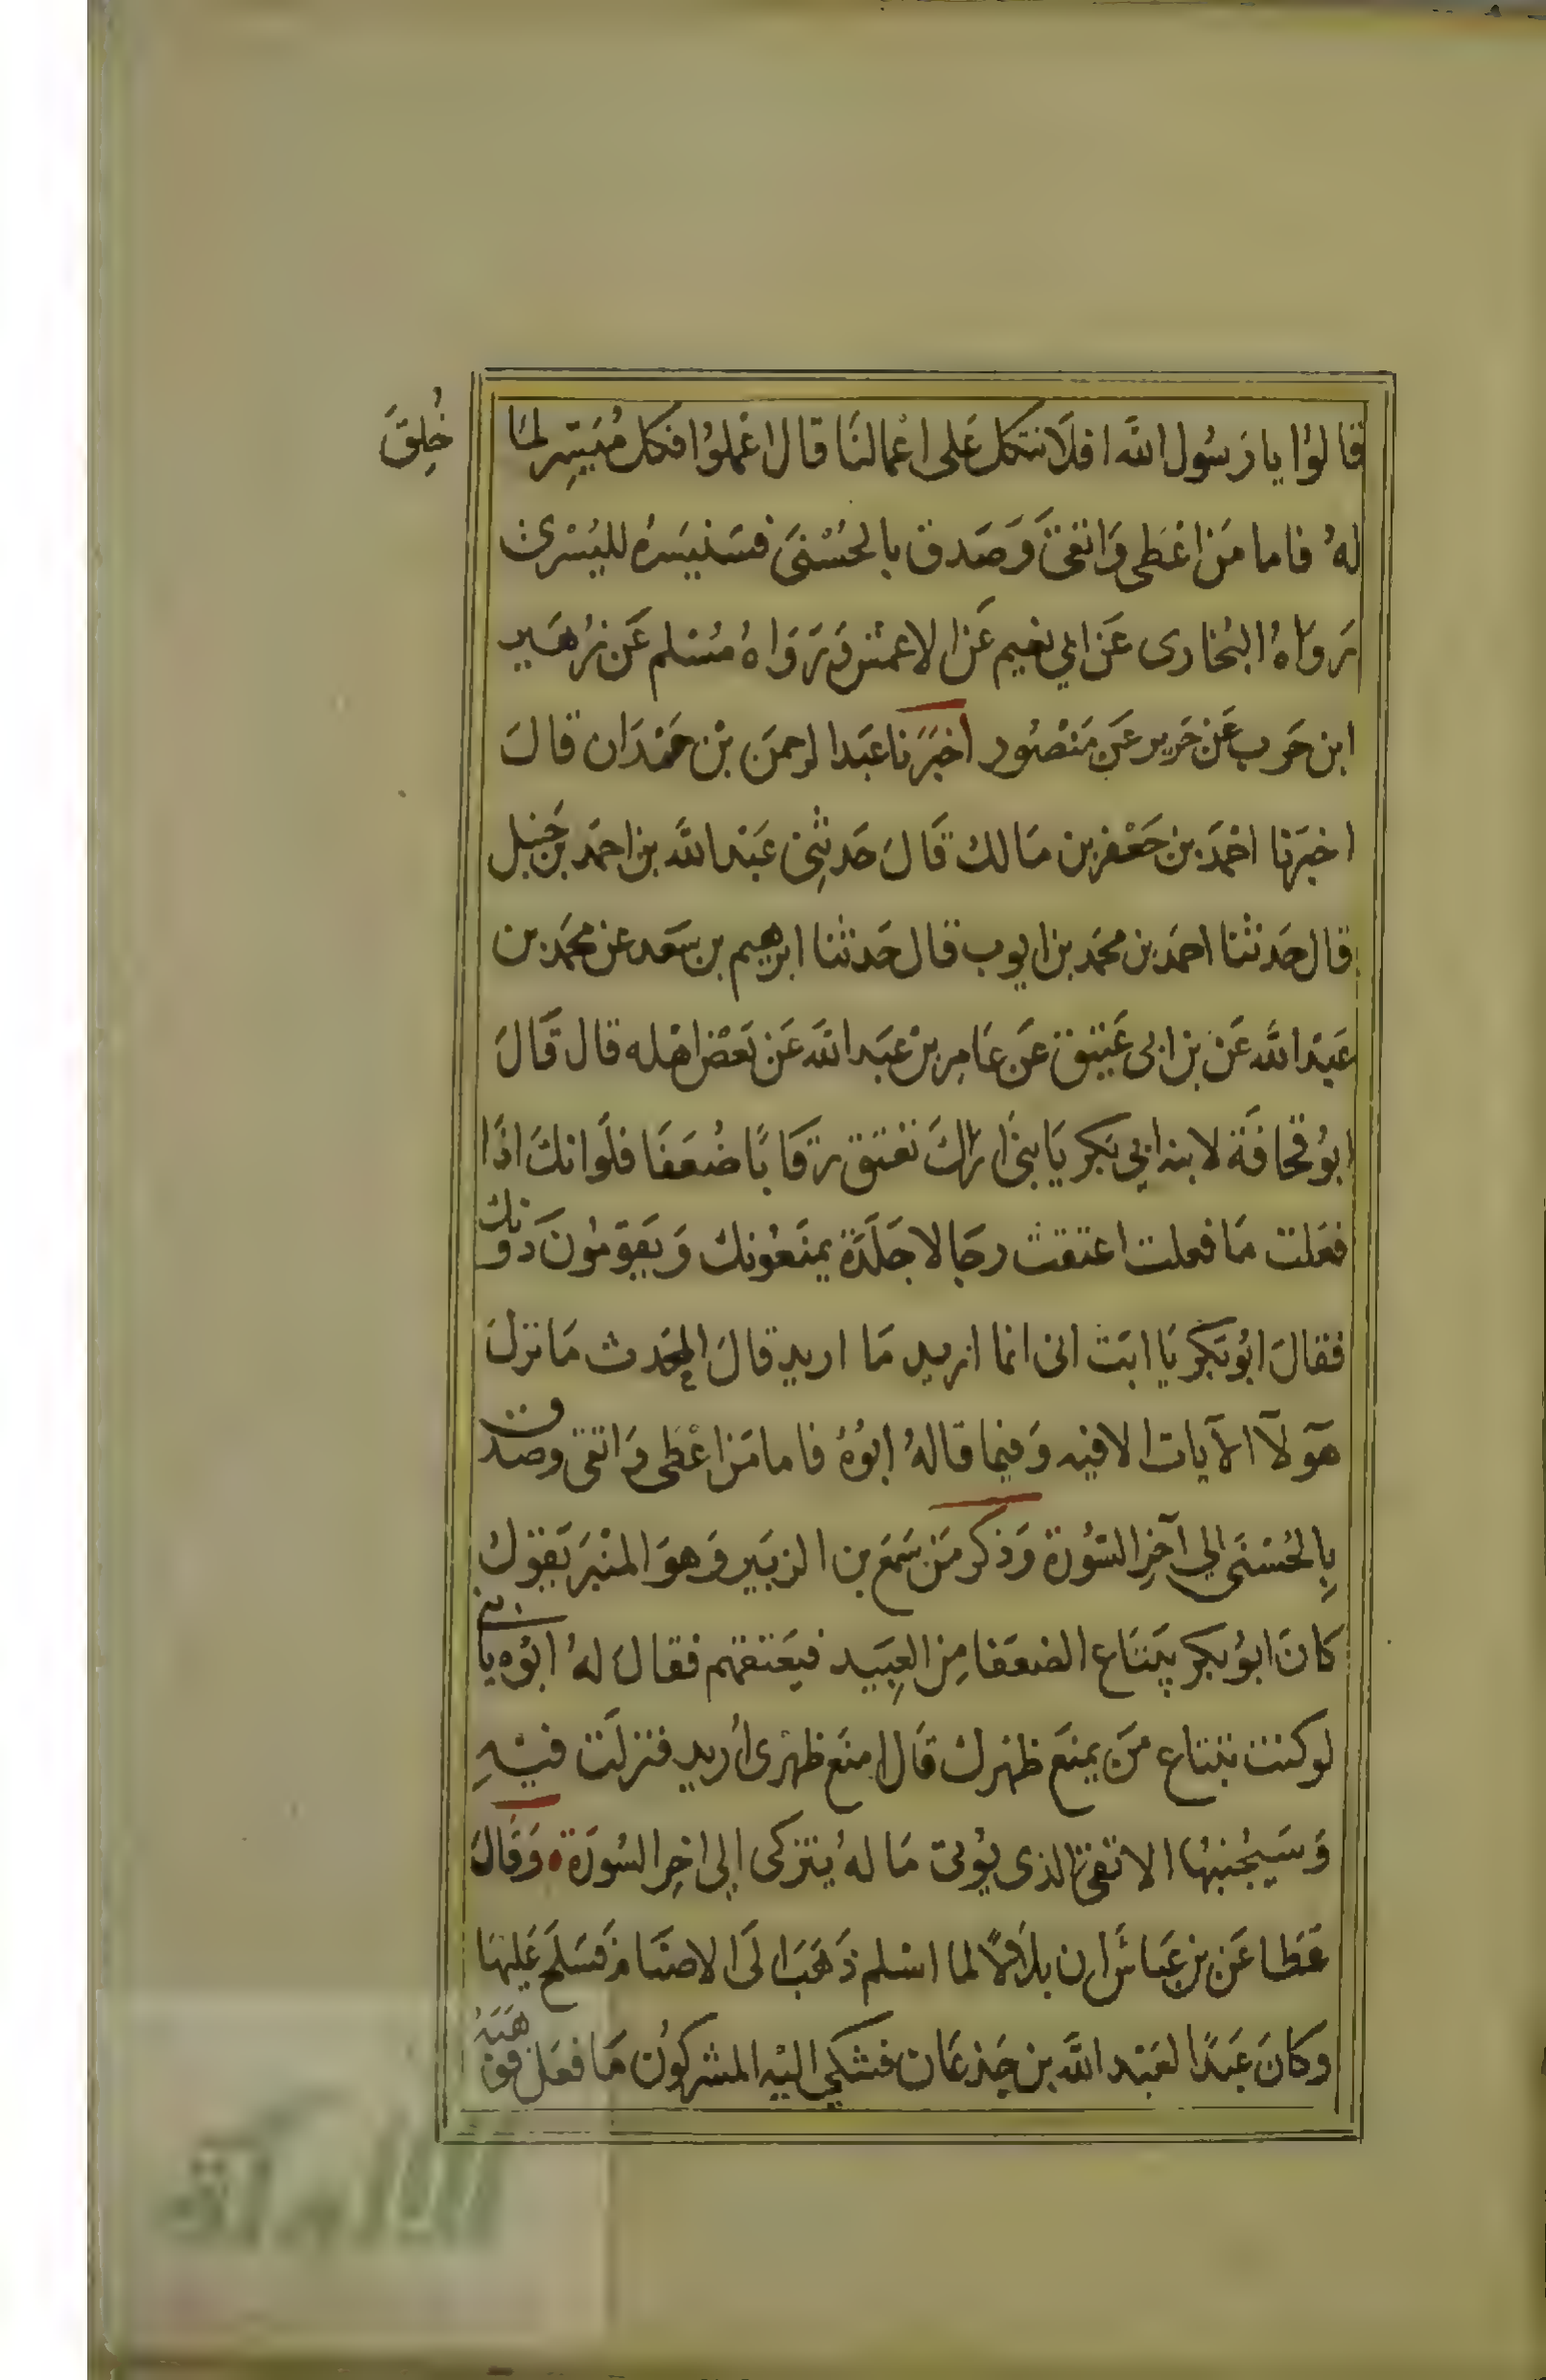 قالوا يا رَسُول اللَّه افلَا نتكل عَلى اعْمالنَا قال اعْملوُا فكل مُيَسِر لمَا خُلِقَ
لهُ فاما مَن اعْطى وَاتقىَ وَصَدق بالحُسْنىَ فسَنيسَرهُ لليُسْرىٰ
رَوَاهُ البُخارى عَن ابي نعيم عَن الاعمش وَرَوَاهُ مُسْلم عَن زُهَير
ابن حَرب عَن جَرير عَن مَنْصُور اخبَرَنا عَبد الرحمنَ بْن حَمْدَان قالَ
اخبَرنا احْمدَ بن جَعْفر بن مَالك قَالَ حَدثنِى عَبْد اللَّه بن احمَد بن حَنبل
قال حَدثنا احمَد بن محمَد بن ايوب قال حَدثنا ابرهيم بن سَعَد عن محمَد بن
عَبْد اللَّه عَنْ بن ابى عَتيق عَن عَامِر بنْ عَبَد اللَّه عَن بَعْض اهْله قال قَالَ
ابوُ قحَافَة لابنه ابي بَكر يَا بنىَ ارَاكَ تعْتق رقَابًا ضُعَفَا فلَو انكَ اذَا
فعَلت مَا فعلت اعتقت رجَالا جَلَدَة يمنَعُونك وَيَقومُونَ دَونك
فقالَ ابُو بَكر يَا ابَت انى انما اريد مَا اريد قالَ المحَدث مَا نزلَ
هَولآ الآيات الا فيه وَفيما قالهُ ابوُهُ فاما مَن اعْطى وَاتقى وصَدق
بِالحُسْنىَ الي آخِر السُورة وَذكر مَن سَمعَ بن الزبَير وَهوَ المنْبَر يَقوُل
كانَ ابوُ بكر يبَتاع الضعَفا مِن العِبَيد فيَعتقهم فقالَ لهُ ابُوه يا بنى
لو كنت تبتاع مَن يمنَع ظهرك قَال امنَع ظهرْى أريد فنزلَت فيْهِ
وَسَيجُنبهُا الاتقىَ الذى يُوتى مَا لهُ يتزكى الِى اخِر السُورَة وَقَالَ
عَطا عَن بن عَباسَ ان بلاَلاً لما اسْلم ذَهَبَ الَى الاصنَام فَسَلحَ عَليْهَا
وكانَ عَبَدًا لعَبْد اللَّه بن جَذعَان فشكى اليْه المشركوُن مَا فعَل فوَهَبَهُ